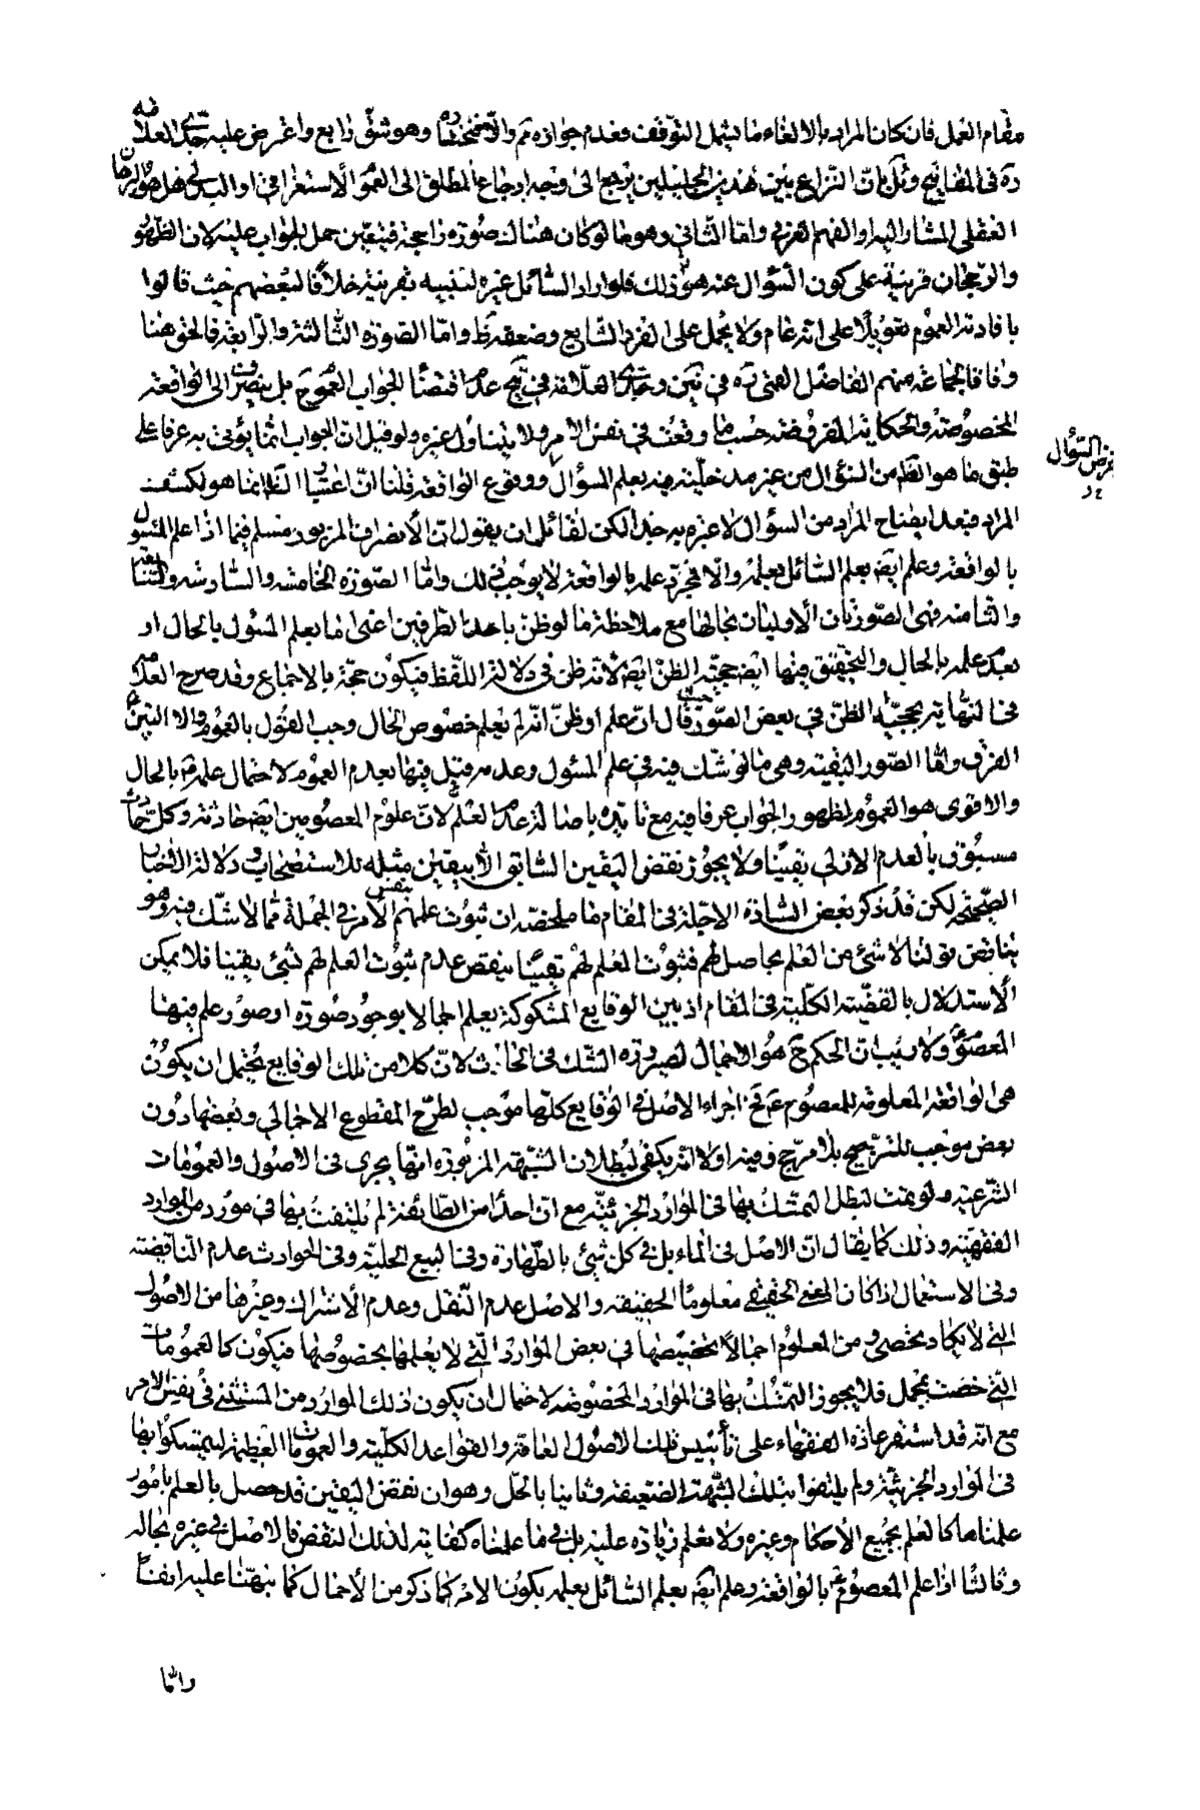 مقام العمل فان كان المراد بالالغاء ما يشمل التوقف فعدم جوازه ثم والا فتختاره وهو شق رابع واعترض عليه جدى العلامه
ره فى المفاتيح وئل بان النزاع بين هذين الجليلين يرجع الى وجه ارجاع المطلق الى العموم الاستغراقى او البدلى هل هو البرهان
العقلى المشار اليه او الفهم العرفى واما الثانى وهو ما لو كان هناك صورة راجحة فيتعين حمل الجواب عليه لان الظهور
والرجحان قرينة على كون السؤال عنه هو ذلك فلو اراد السائل غيره لنبيه بقرينة خلافا لبعضهم حيث قالوا
بافادته العموم تعويلا على انه عام ولا يحمل على الفرد الشايع وضعفه ظ واما الصورة الثالثة والرابعة فالحق هنا
وفاقا لجماعة منهم الفاضل القمى ره فى نين وجدى العلامة فى تيح عدم اقتضاء الجواب العموم بل ينصرف الى الواقعة
المخصوصة والحكاية المفروضة حسب ما وقعت فى نفس الامر ولا يتناول غيره ولو قيل ان الجواب انما يؤتى به عرفا على
طبق ما هو الظ من السؤال من غير مدخلية فيه بعلم المسؤل ووقوع الواقعة قلنا ان اعتبار الظ انما هو لكشف
المراد فبعد ايضاح المراد من السؤال لا عبرة به جدا لكن لقائل ان يقول ان الانصراف المزبور مسلم فيما اذا علم المسئول
بالواقعة وعلم ايضا بعلم السائل بعلمه والا فمجرد علمه بالواقعة لا يوجب ذلك واما الصورة الخامسة والسادسة والسابعة
والثامنة فهى الصورتان الاوليان بحالهما مع ملاحظة ما لو ظن باحد الطرفين اعنى ما يعلم المسئول بالحال او
بعدم علمه بالحال والتحقيق فيها ايضا حجية الظن ايضا لانه ظن فى دلالة اللفظ فيكون حجة بالاجماع وقد صرح العلامة
فى النهاية بحجية الظن فى بعض الصور حيث قال ان علم او ظن انه لم يعلم خصوص الحال وجب القول بالعموم والا
الفرق واما الصور البقية وهى ما لو شك فيه فى علم المسئول وعدمه فقيل فيها بعدم العموم لاحتمال علمه ع بالحال
والاقوى هو العموم لظهور الجواب عرفا فيه مع تاييده باصالة عدم العلم لان علوم المعصومين ع ايضا حادثة وكل حادث
مسبوق بالعدم الازلى يقينا ولا يجوز نقض اليقين السابق الا بيقين مثله للاستصحاب ودلالة الاخبار
الصحيحة لكن قد ذكر بعض السادة الاجلة فى المقام ما ملخصه ان ثبوت علمهم بنفس الامر فى الجملة مما لا شك فيه وهو
يناقض قولنا لا شئ من العلم بحاصل لهم فثبوت العلم لهم يقينا ينقض عدم ثبوت العلم لهم بشئ يقينا فلا يمكن
الاستدلال بالقضية الكلية فى المقام اذ بين الوقايع المشكوكة يعلم اجمالا بوجود صورة او صور علم فيها
المعصوم ع ولا ريب ان الحكم ح هو الاجمال لصيرورة الشك فى الحادث لان كلا من تلك الوقايع يحتمل ان يكون
هى الواقعة المعلومة للمعصوم ع فح اجراء الاصل فى الوقايع كلها موجب لطرح المقطوع الاجمالى وبعضها دون
بعض موجب للترجيح بلا مرجح وفيه اولا انه يكفى لبطلان الشبهة المزبورة انها يجرى فى الاصول والعمومات
الشرعية فلو تمت لبطل التمسك بها فى الموارد الجزئية مع ان احدا من الطائفة لم يلتفت بها فى مورد من الموارد
الفقهية وذلك كما يقال ان الاصل فى الماء بل فى كل شئ بالطهارة وفى البيع الحلية وفى الحوادث عدم الناقضية
وفى الاستعمال اذا كان المعنى الحقيقى معلوما الحقيقة والاصل عدم النقل وعدم الاشتراك وغيرها من الاصول
التى لا يكاد يحصى ومن المعلوم اجمالا تخصيصها فى بعض الموارد التى لا يعلمها بخصوصها فيكون كالعمومات
التى خصت بمجمل فلا يجوز التمسك بها فى الموارد المخصوصة لاحتمال ان يكون ذلك الموارد من المستثنى فى نفس الامر
مع انه قد استقر عادة الفقهاء على تأسيس تلك الاصول العامة والقواعد الكلية والعمومات القطعية ليتمسكوا بها
فى الموارد الجزئية ولم يلتفتوا بتلك الشبهة الضعيفة وثانيا بالحل وهو ان نقض اليقين قد حصل بالعلم بامور
علمناها كالعلم بجميع الاحكام وغيره ولا نعلم زيادة عليه بل فى ما علمناه كفاية لذلك النقض فالاصل فى غيره بحاله
وثالثا اذا علم المعصوم ع بالواقعة وعلم ايضا بعلم السائل بعلمه يكون الامر كما ذكر من الاجمال كما نبهنا عليه ايضا
واما
غرض السؤال